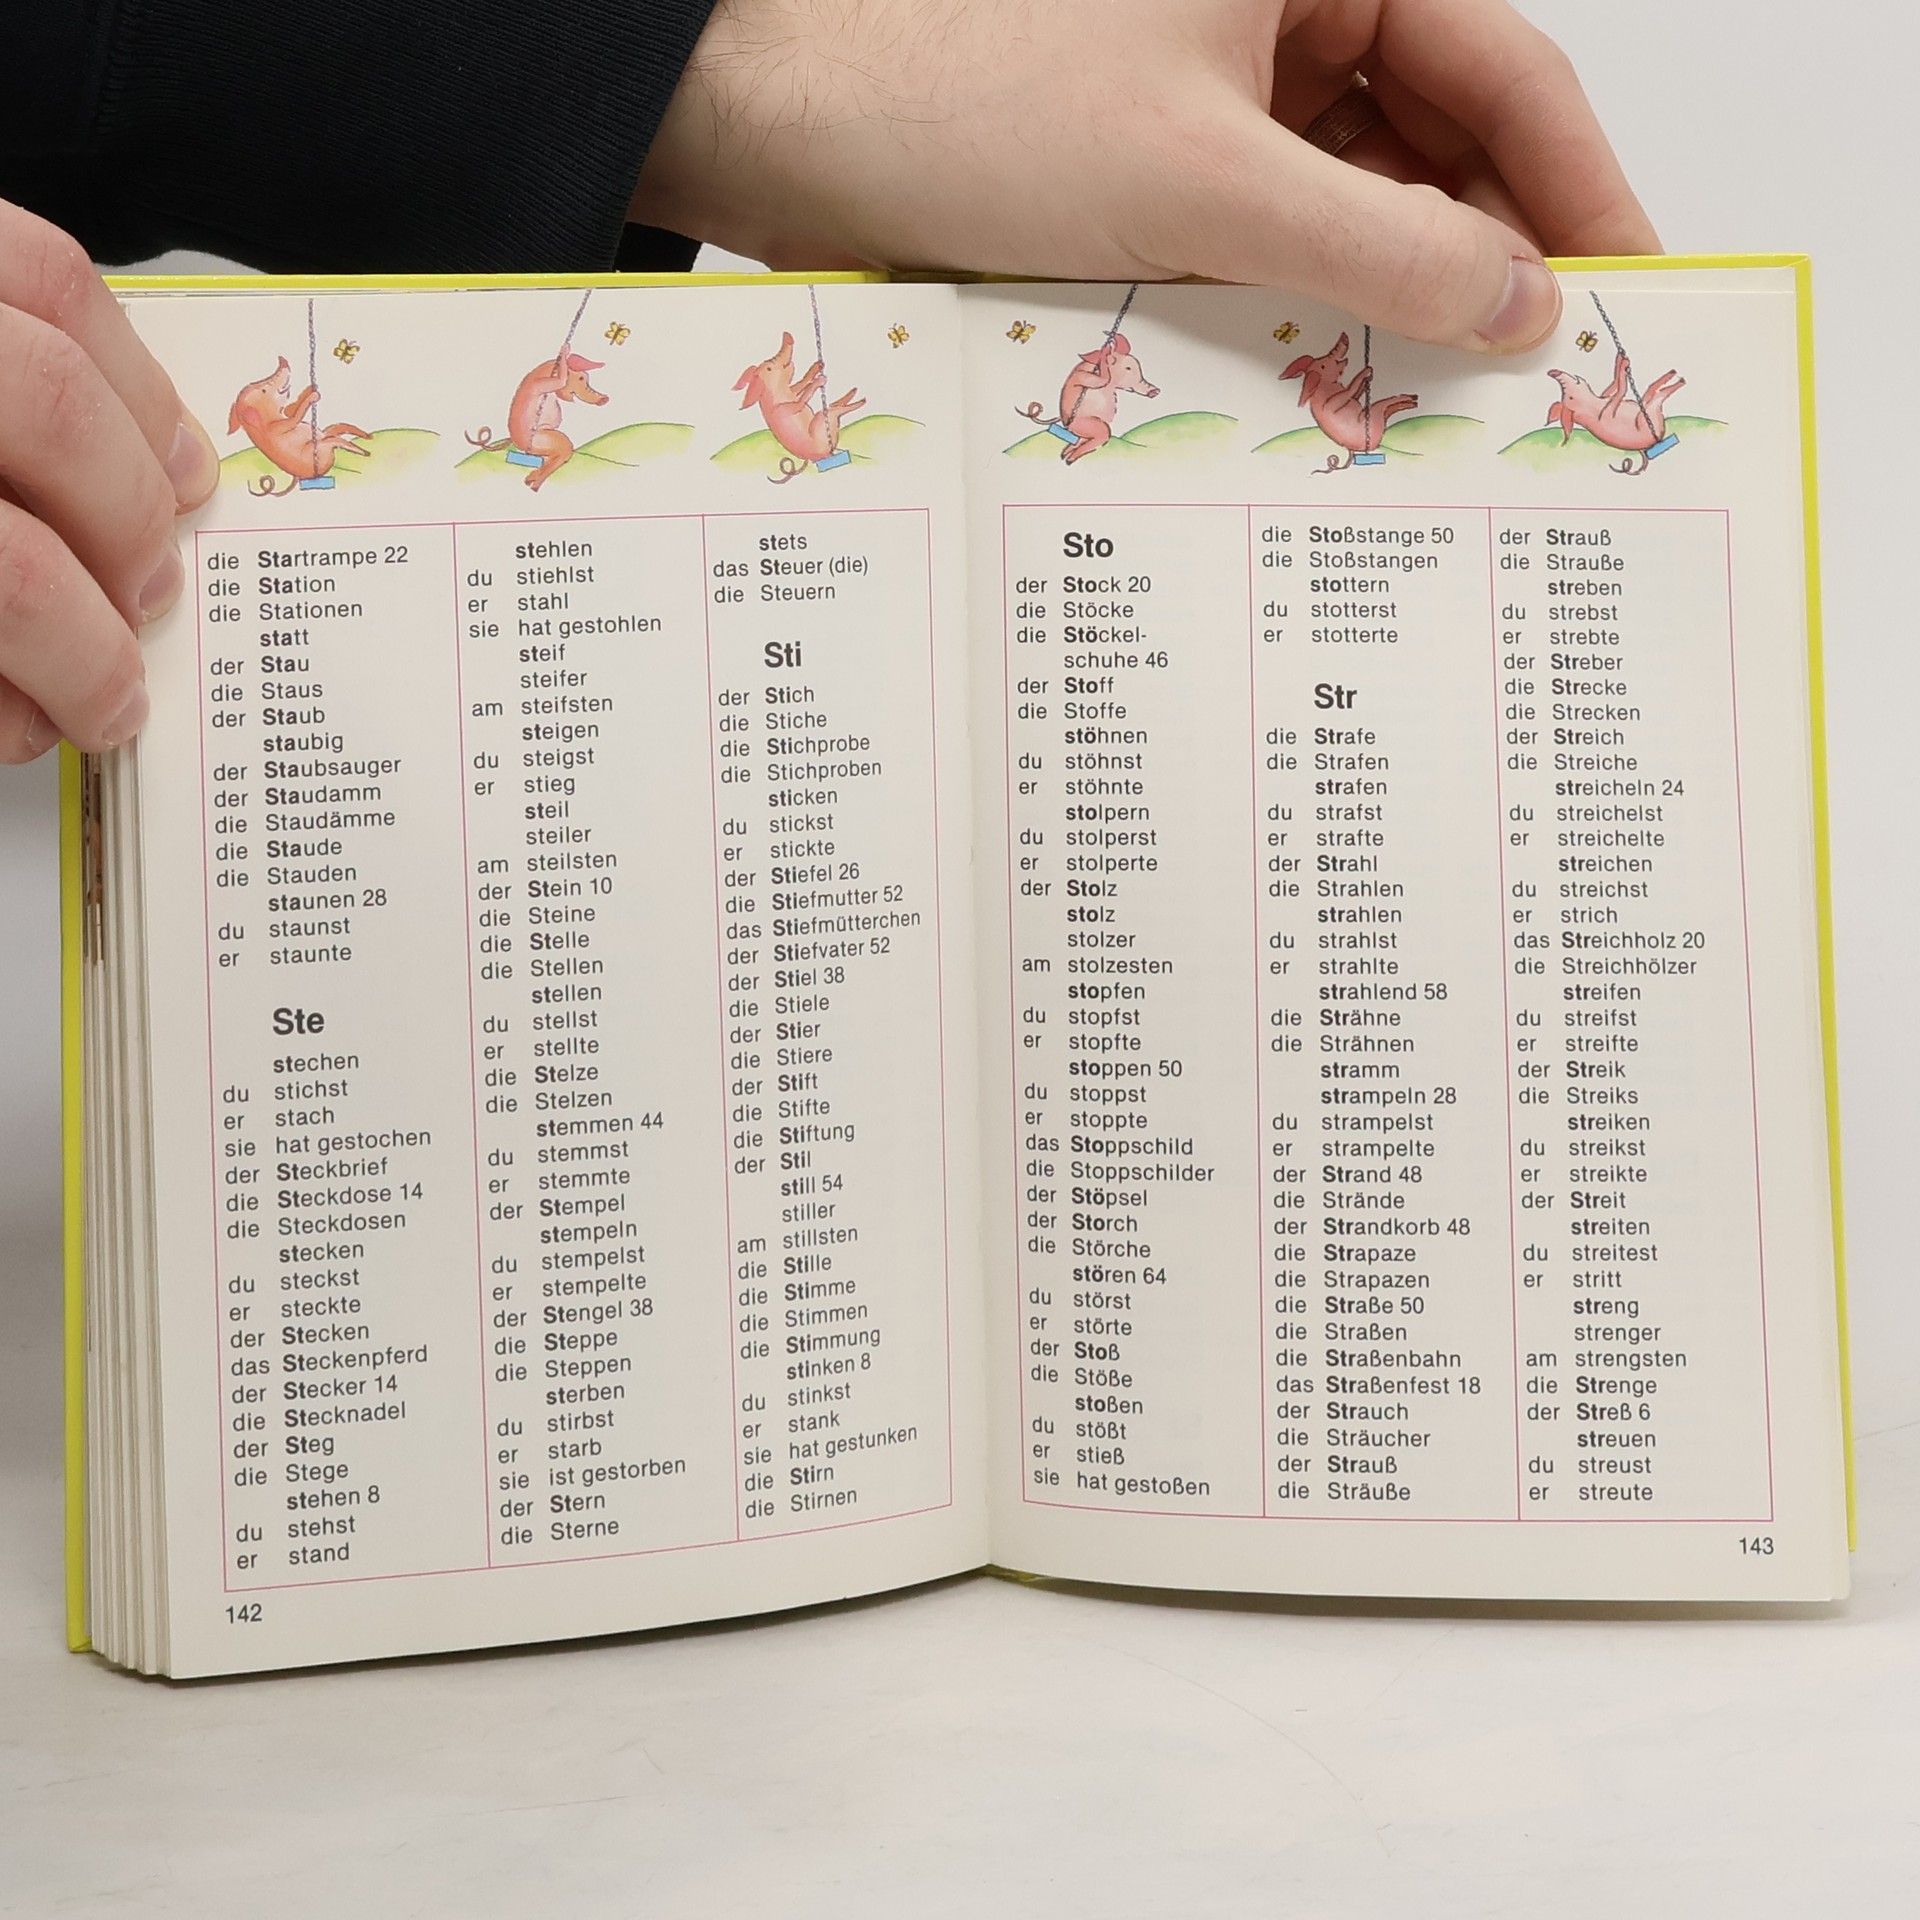 die Startrampe 22
die Station
die Stationen
statt
der Stau
die Staus
der Staub
staubig
der Staubsauger
der Staudamm
die Staudämme
die Staude
die Stauden
staunen 28
du staunst
er staunte
Ste
stechen
du stichst
er stach
sie hat gestochen
der Steckbrief
die Steckdose 14
die Steckdosen
stecken
du steckst
er steckte
der Stecken
das Steckenpferd
der Stecker 14
die Stecknadel
der Steg
die Stege
stehen 8
du stehst
er stand
stehlen
du stiehlst
er stahl
sie hat gestohlen
steif
steifer
am steifsten
steigen
du steigst
er stieg
steil
steiler
am steilsten
der Stein 10
die Steine
die Stelle
die Stellen
stellen
du stellst
er stellte
die Stelze
die Stelzen
stemmen 44
du stemmst
er stemmte
der Stempel
stempeln
du stempelst
er stempelte
der Stengel 38
die Steppe
die Steppen
sterben
du stirbst
er starb
sie ist gestorben
der Stern
die Sterne
stets
das Steuer (die)
die Steuern
Sti
der Stich
die Stiche
die Stichprobe
die Stichproben
sticken
du stickst
er stickte
der Stiefel 26
die Stiefmutter 52
das Stiefmütterchen
der Stiefvater 52
der Stiel 38
die Stiele
der Stier
die Stiere
der Stift
die Stifte
die Stiftung
der Stil
still 54
stiller
am stillsten
die Stille
die Stimme
die Stimmen
die Stimmung
stinken 8
du stinkst
er stank
sie hat gestunken
die Stirn
die Stirnen
142
Sto
der Stock 20
die Stöcke
die Stöckel-
schuhe 46
der Stoff
die Stoffe
stöhnen
du stöhnst
er stöhnte
stolpern
du stolperst
er stolperte
der Stolz
stolz
stolzer
am stolzesten
stopfen
du stopfst
er stopfte
stoppen 50
du stoppst
er stoppte
das Stoppschild
die Stoppschilder
der Stöpsel
der Storch
die Störche
stören 64
du störst
er störte
der Stoß
die Stöße
stoßen
du stößt
er stieß
sie hat gestoßen
die Stoßstange 50
die Stoßstangen
stottern
du stotterst
er stotterte
Str
die Strafe
die Strafen
strafen
du strafst
er strafte
der Strahl
die Strahlen
strahlen
du strahlst
er strahlte
strahlend 58
die Strähne
die Strähnen
stramm
strampeln 28
du strampelst
er strampelte
der Strand 48
die Strände
der Strandkorb 48
die Strapaze
die Strapazen
die Straße 50
die Straßen
die Straßenbahn
das Straßenfest 18
der Strauch
die Sträucher
der Strauß
die Sträuße
der Strauß
die Strauße
streben
du strebst
er strebte
der Streber
die Strecke
die Strecken
der Streich
die Streiche
streicheln 24
du streichelst
er streichelte
streichen
du streichst
er strich
das Streichholz 20
die Streichhölzer
streifen
du streifst
er streifte
der Streik
die Streiks
streiken
du streikst
er streikte
der Streit
streiten
du streitest
er stritt
streng
strenger
am strengsten
die Strenge
der Streß 6
streuen
du streust
er streute
143